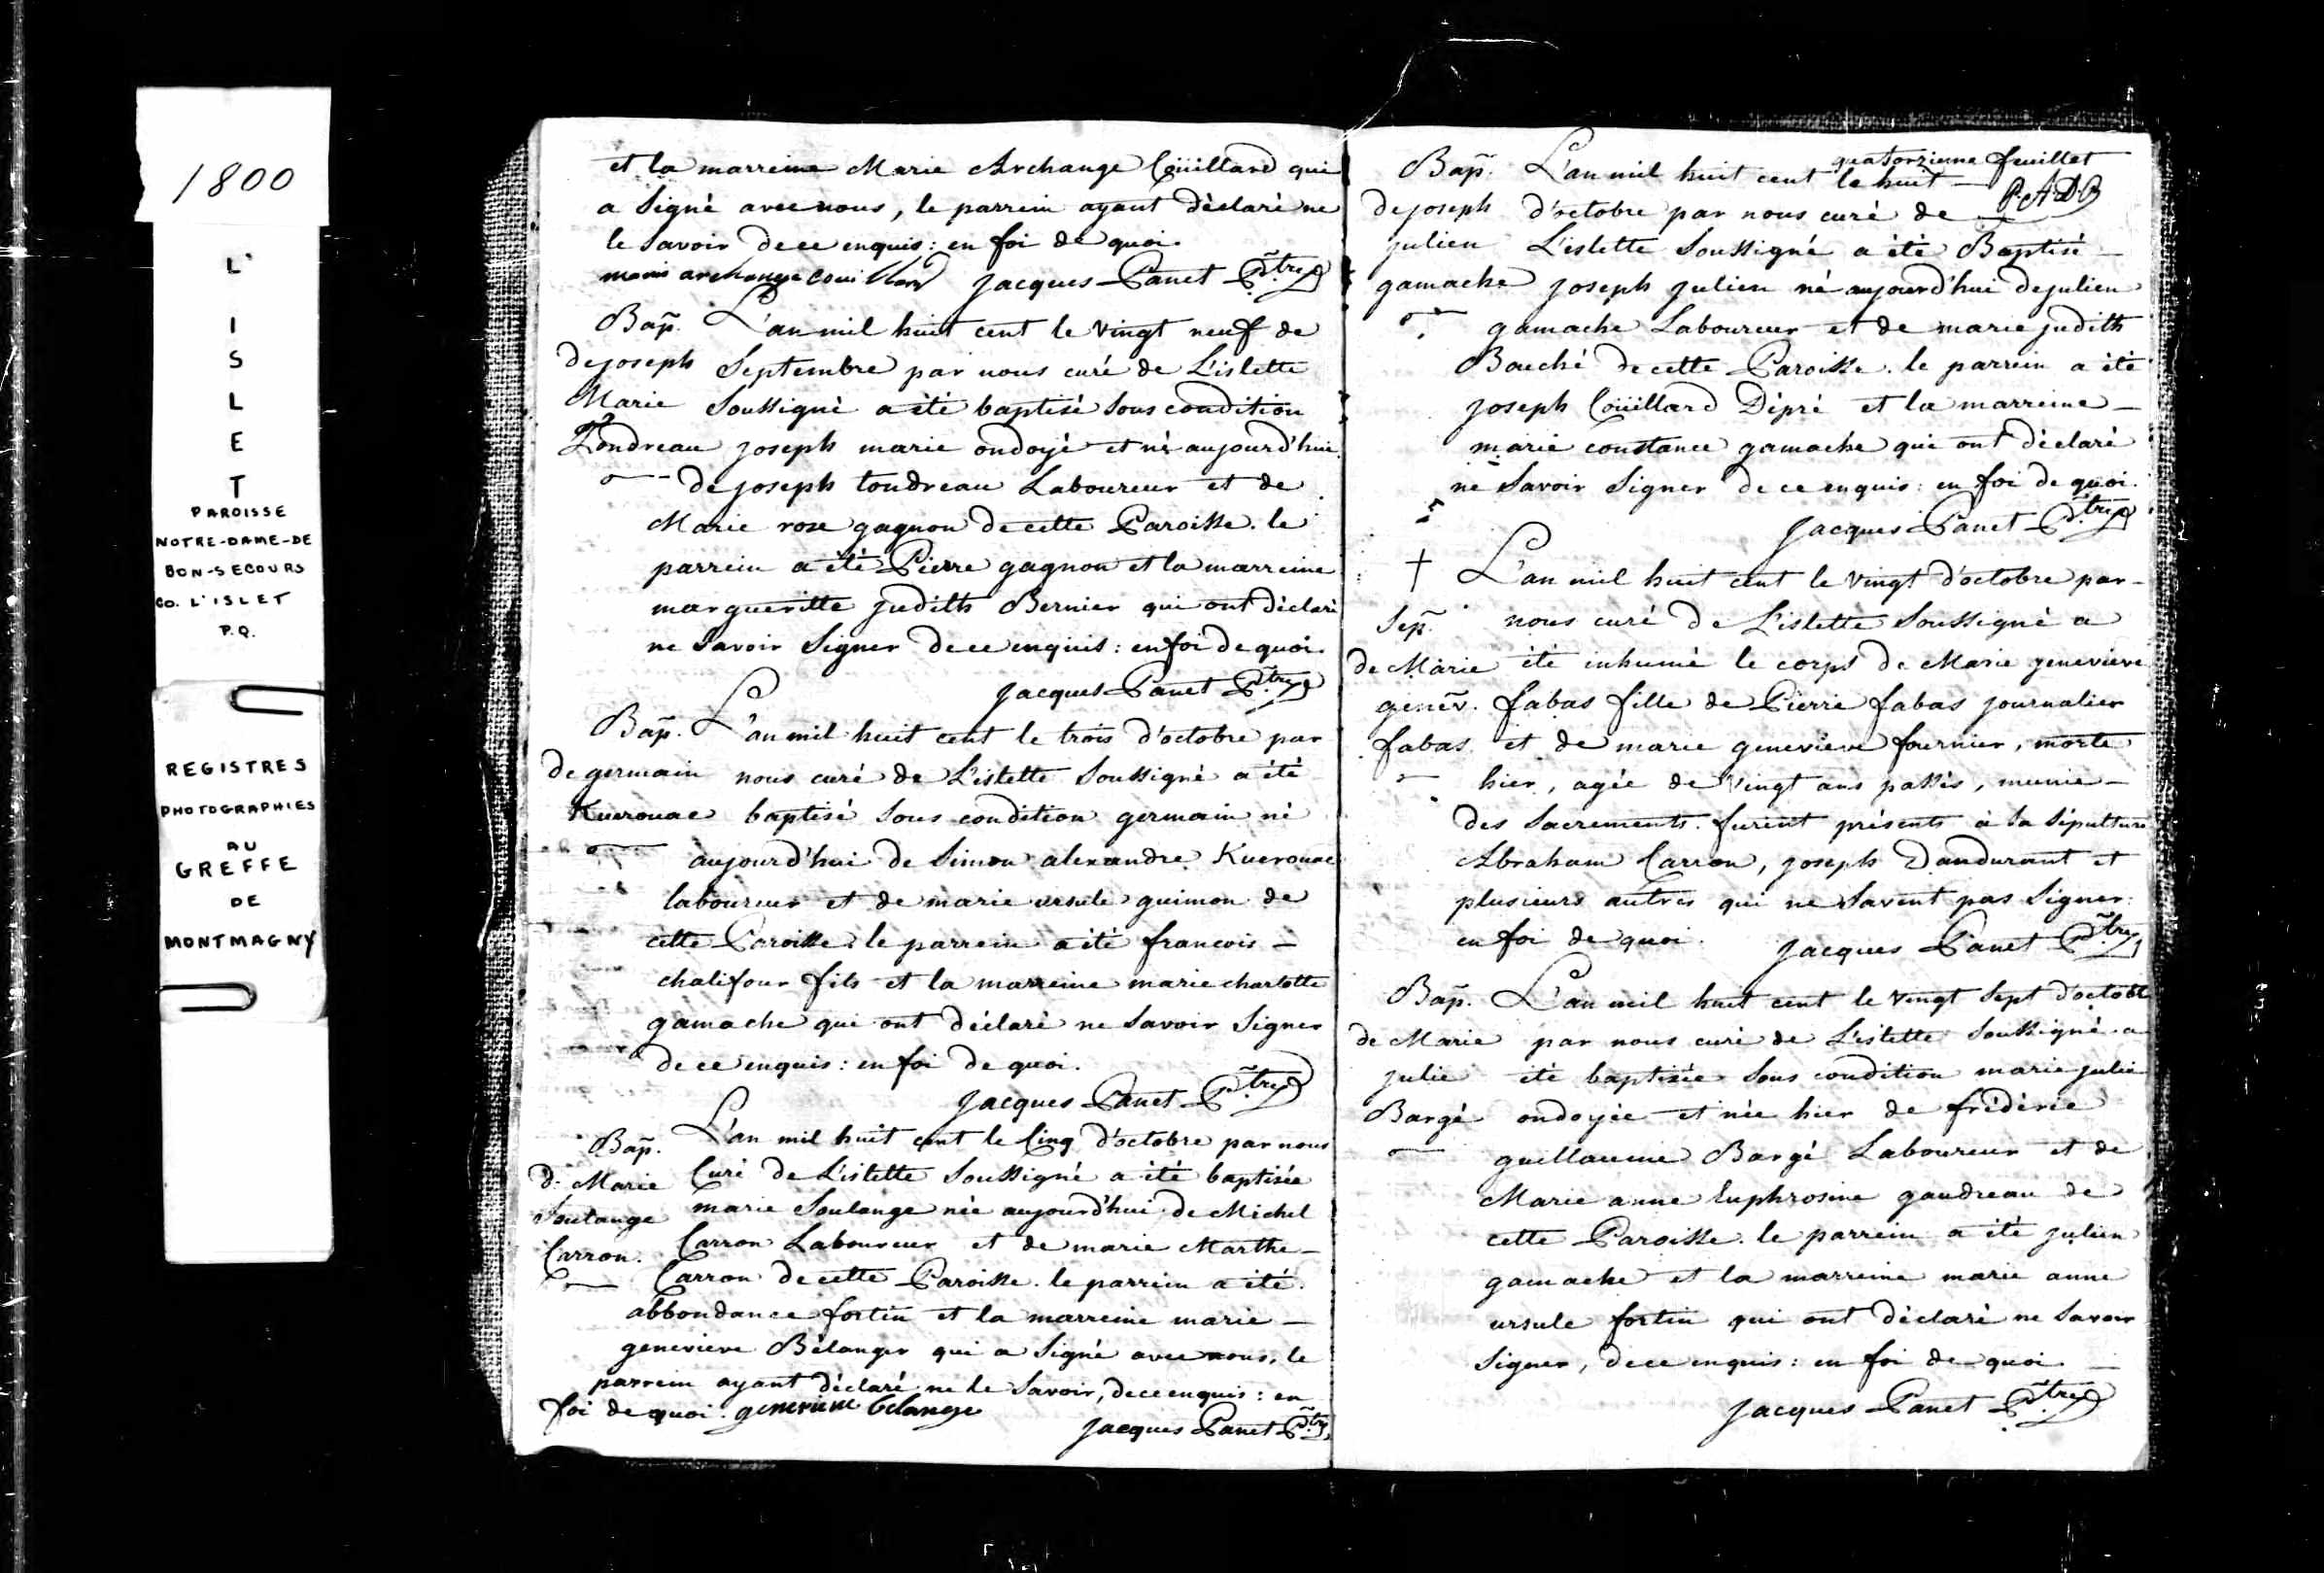 1800
L'
I
S
L
E
T
PAROISSE
NOTRE-DAME-DE
BON-SECOURS
CO. L'ISLET
P.Q.
REGISTRES
PHOTOGRAPHIES
AU
GREFFE
DE
MONTMAGNY
et la marreine Marie Archange Coüillard qui
a Signé avec nous, le parrein ayant déclaré ne
le Savoir de ce enquis : en foi de quoi.
marie archange Couillard Jacques Panet Ptre
Bap. L'an mil huit cent le vingt neuf de
de joseph Septembre par nous curé de L'islette
Marie Soussigné a été baptisé Sous condition
Tondreau joseph marie ondoyé et né aujourd'hui
de joseph tondreau Laboureur et de
Marie rose gagnon de cette Paroisse. le
parrein a été Pierre gagnon et la marreine
margueritte judith Bernier qui ont déclaré
ne Savoir Signer de ce enquis : en foi de quoi.
Jacques Panet Ptre
Bap. L'an mil huit cent le trois d'octobre par
de germain nous curé de L'islette Soussigné a été
Kuerouac baptisé Sous condition germain né
aujourd'hui de Simon alexandre Kuerouac
laboureur et de marie ursule guimon de
cette Paroisse. le parrein a été francois -
chalifour fils et la marreine marie charlotte
gamache qui ont déclaré ne Savoir Signer
de ce enquis : en foi de quoi.
Jacques Panet Ptre
Bap. L'an mil huit cent le Cinq d'octobre par nous
de Marie Curé de L'islette Soussigné a été baptisée
Soulange marie Soulange née aujourd'hui de Michel
Carron. Carron Laboureur et de marie Marthe -
Carron de cette Paroisse. le parrein a été.
abbondance fortin et la marreine marie -
genevieve Bélanger qui a Signé avec nous, le
parrein ayant déclaré ne le Savoir, de ce enquis : en
foi de quoi. genevieve belange
Jacques Panet Ptre
quatorzieme feuillet
Bap. L'an mil huit cent le huit - P.A.D.B
de joseph d'octobre par nous curé de
julien L'islette Soussigné a été Baptisé -
gamache joseph julien né aujourd'hui de julien
gamache Laboureur et de marie judith
Bouché de cette Paroisse. le parrein a été
joseph Coüillard Dépré et la marreine -
marie constance gamache qui ont déclaré
ne Savoir Signer de ce enquis : en foi de quoi.
Jacques Panet Ptre
† L'an mil huit cent le vingt d'octobre par -
Sep. nous curé de L'islette Soussigné a
de Marie été inhumé le corps de Marie genevieve
genev. fabas fille de Pierre fabas journalier
fabas et de marie genevieve fournier, morte
hier, agée de vingt ans passés, munie -
des Sacrements. furent présents à la Sépulture
Abraham Carron, joseph Dandurant et
plusieurs autres qui ne Savent pas Signer.
en foi de quoi. Jacques Panet Ptre
Bap. L'an mil huit cent le vingt Sept d'octobre
de Marie par nous curé de L'islette Soussigné a
julie été baptisée Sous condition marie julie
Bargé ondoyée et née hier de frédéric
guellaume Bargé Laboureur et de
Marie anne Euphrosine gaudreau de
cette Paroisse. le parrein a été julien
gamache et la marreine marie anne
ursule fortin qui ont déclaré ne Savoir
Signer, de ce enquis : en foi de quoi. -
Jacques Panet Ptre